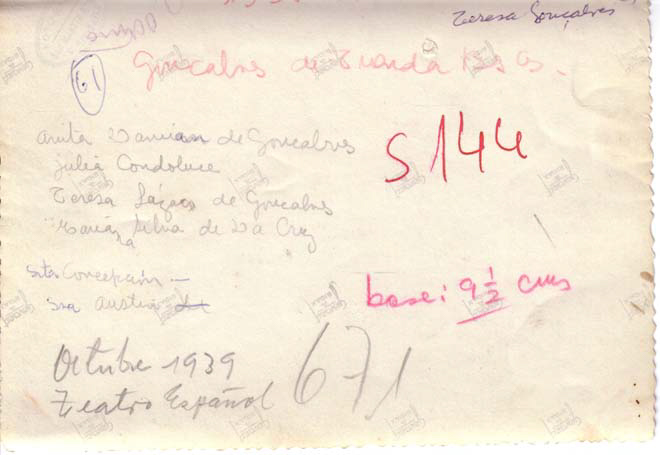 Teresa Gonçalves
61
Goncalves de
S144
Anita Damian de Goncalves
Julia Condoluce
Teresa de Goncalves
Maria Silva de Da Cruz
Srta Concepción —
Sra Austin
base: 9 1/2 cms
Octubre 1939
Teatro Español
671